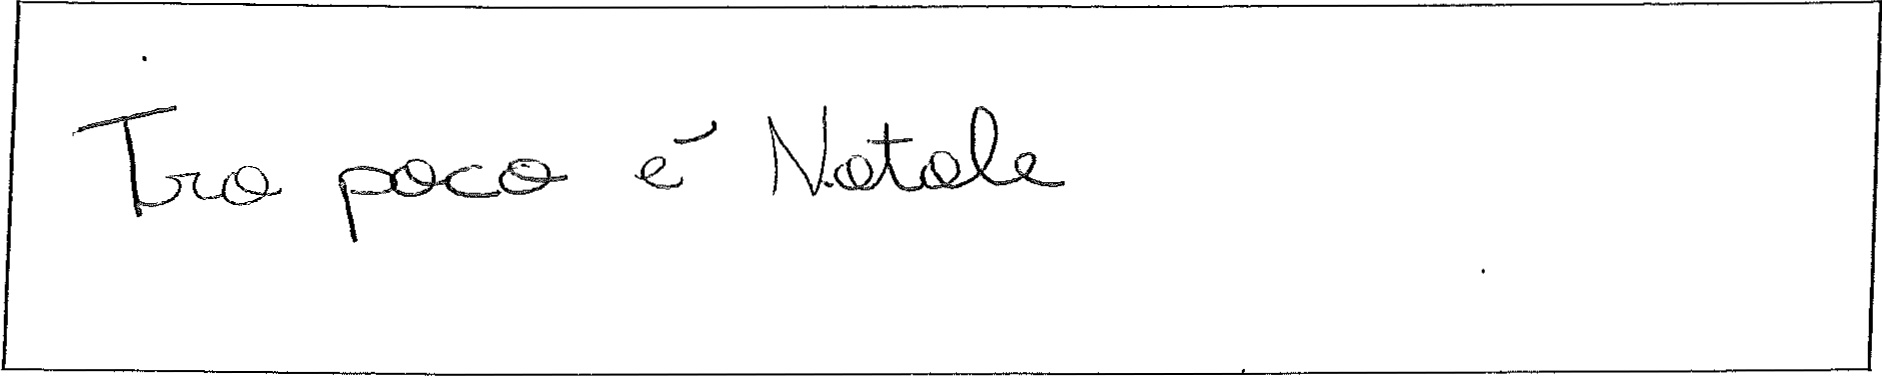 Tra poco é Natale